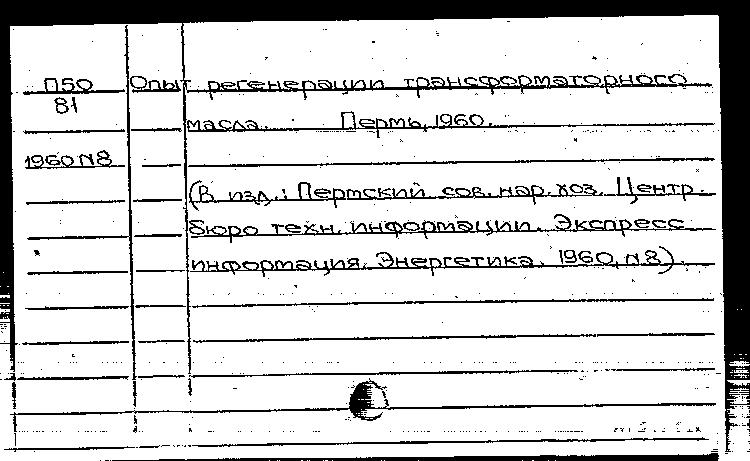 П50
81
1960 N8
Опыт регенерации трансформаторного
масла. Пермь, 1960.
(В изд.: Пермский сов. нар. хоз. Центр.
бюро техн. информации. Экспресс
информация. Энергетика. 1960, N 8).